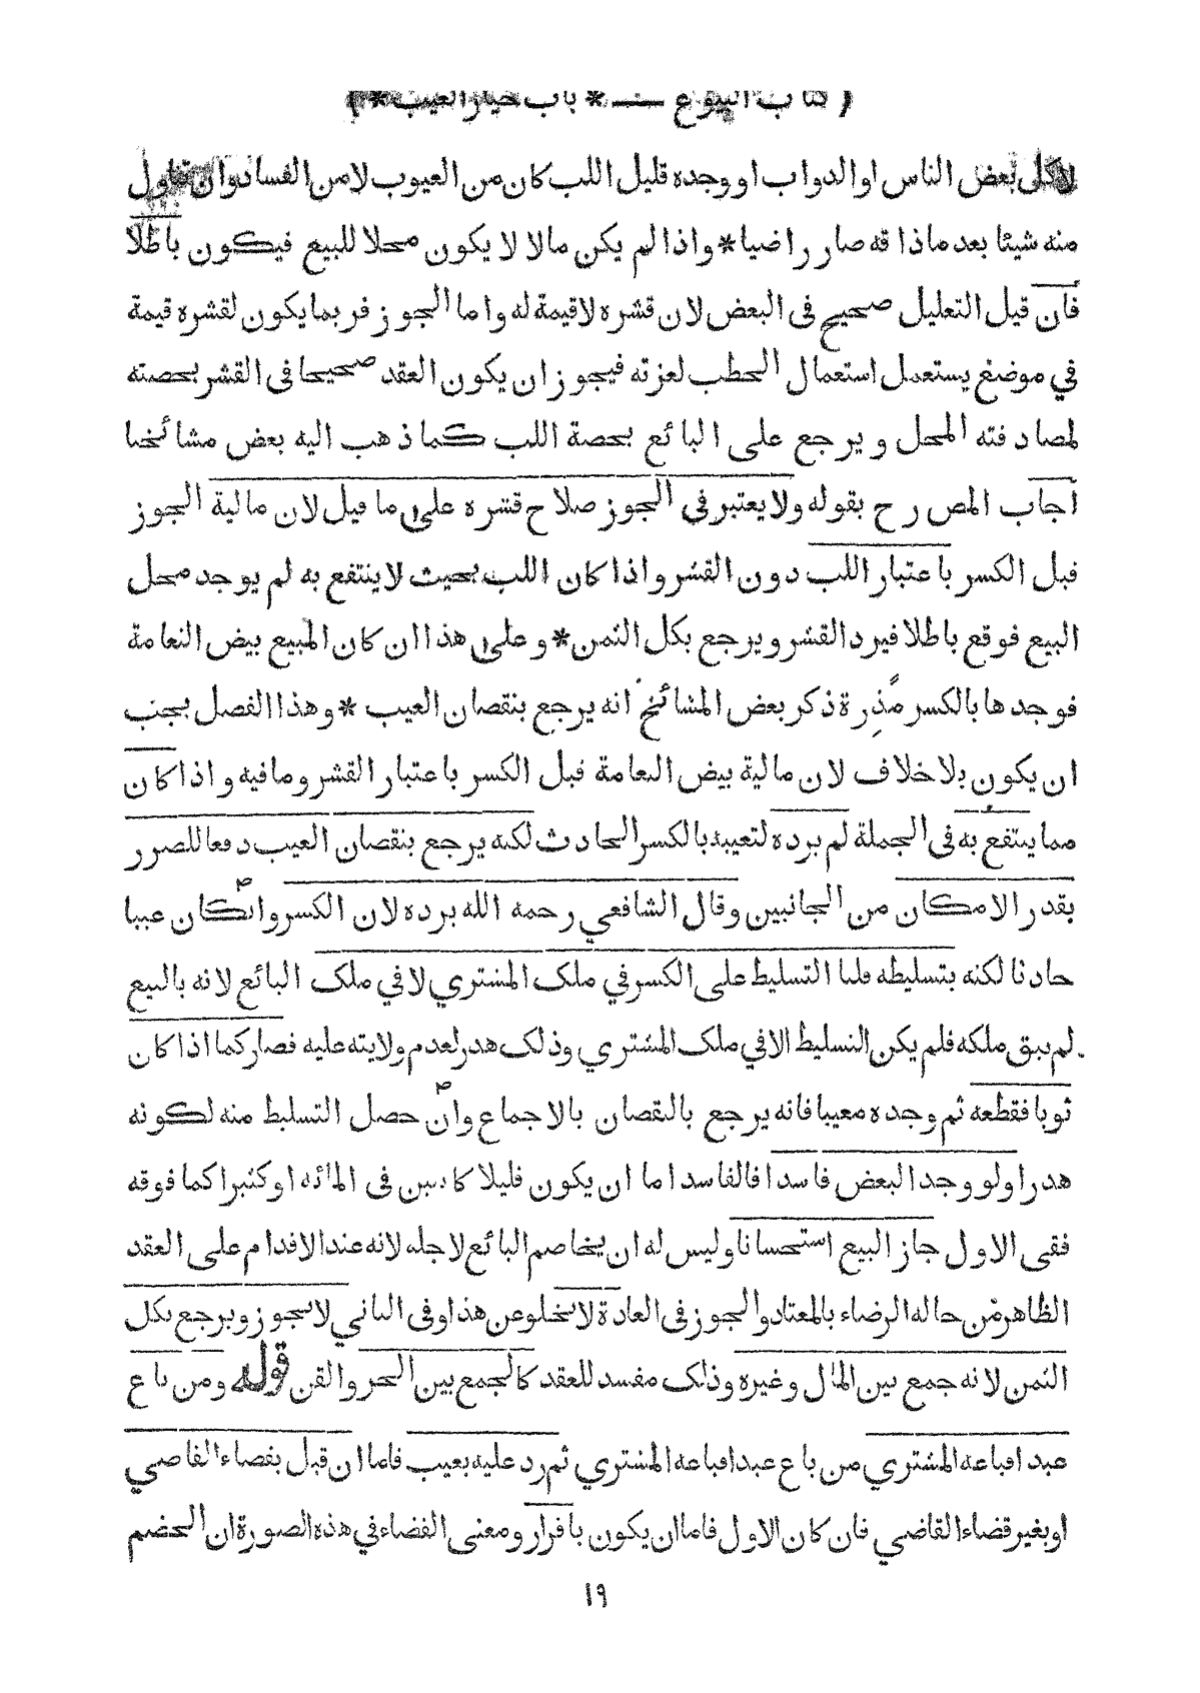 ( كتاب البيوع ــــ * باب خيار العيب * )
لاكل بعض الناس او الدواب او وجده قليل اللب كان من العيوب لا من الفساد وان تناول
منه شيئا بعد ماذاقه صار راضيا * واذا لم يكن مالا لا يكون محلا للبيع فيكون باطلا
فان قيل التعليل صحيح فى البعض لان قشره لاقيمة له واما الجوز فربما يكون لقشره قيمة
في موضع يستعمل استعمال الحطب لعزته فيجوز ان يكون العقد صحيحا فى القشر بحصته
لمصادفته المحل ويرجع على البائع بحصة اللب كما ذهب اليه بعض مشائخنا
أجاب المص رح بقوله ولا يعتبر فى الجوز صلاح قشره على ما قيل لان مالية الجوز
قبل الكسر باعتبار اللب دون القشر واذا كان اللب بحيث لا ينتفع به لم يوجد محل
البيع فوقع باطلا فيرد القشر ويرجع بكل الثمن * وعلى هذا ان كان المبيع بيض النعامة
فوجدها بالكسر مذرة ذكر بعض المشائخ انه يرجع بنقصان العيب * وهذا الفصل يجب
ان يكون بلا خلاف لان مالية بيض النعامة قبل الكسر باعتبار القشر وما فيه واذا كان
مما ينتفع به فى الجملة لم يرده لتعيبه بالكسر الحادث لكنه يرجع بنقصان العيب دفعا للضرر
بقدر الامكان من الجانبين وقال الشافعي رحمه الله يرده لان الكسر وان كان عيبا
حادثا لكنه بتسليطه قلنا التسليط على الكسر في ملك المشتري لا في ملك البائع لانه بالبيع
لم يبق ملكه فلم يكن التسليط الا في ملك المشتري وذلك هدر لعدم ولايته عليه فصار كما اذا كان
ثوبا فقطعه ثم وجده معيبا فانه يرجع بالنقصان بالاجماع وان حصل التسليط منه لكونه
هدرا ولو وجد البعض فاسدا فالفاسد اما ان يكون قليلا كاثنين فى المائة او كثيرا كما فوقه
ففى الاول جاز البيع استحسانا وليس له ان يخاصم البائع لاجله لانه عند الاقدام على العقد
الظاهر من حاله الرضاء بالمعتاد والجوز فى العادة لا يخلو عن هذا وفى الثاني لا يجوز ويرجع بكل
الثمن لانه جمع بين المال وغيره وذلك مفسد للعقد كالجمع بين الحر والقن قوله ومن باع
عبدا فباعه المشتري من باع عبدا فباعه المشتري ثم رد عليه بعيب فاما ان قبل بقضاء القاضي
او بغير قضاء القاضي فان كان الاول فاما ان يكون باقرار ومعنى القضاء في هذه الصورة ان الخصم
١٩